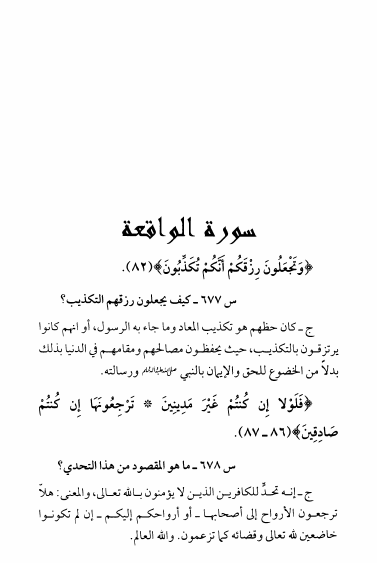 سورة الواقعة
﴿وَتَجْعَلُونَ رِزْقَكُمْ أَنَّكُمْ تُكَذِّبُونَ﴾(٨٢).
س ٦٧٧ ـ كيف يجعلون رزقهم التكذيب؟
ج ـ كان حظهم هو تكذيب المعاد وما جاء به الرسول، أو انهم كانوا
يرتزقون بالتكذيب، حيث يحفظون مصالحهم ومقامهم في الدنيا بذلك
بدلاً من الخضوع للحق والإيمان بالنبي ورسالته.
﴿فَلَوْلا إِن كُنتُمْ غَيْرَ مَدِينِينَ * تَرْجِعُونَهَا إِن كُنتُمْ
صَادِقِينَ﴾(٨٦ ـ ٨٧).
س ٦٧٨ ـ ما هو المقصود من هذا التحدي؟
ج ـ إنه تحدٍّ للكافرين الذين لا يؤمنون بالله تعالى، والمعنى: هلاّ
ترجعون الأرواح إلى أصحابها ـ أو أرواحكم إليكم ـ إن لم تكونوا
خاضعين لله تعالى وقضائه كما تزعمون. والله العالم.